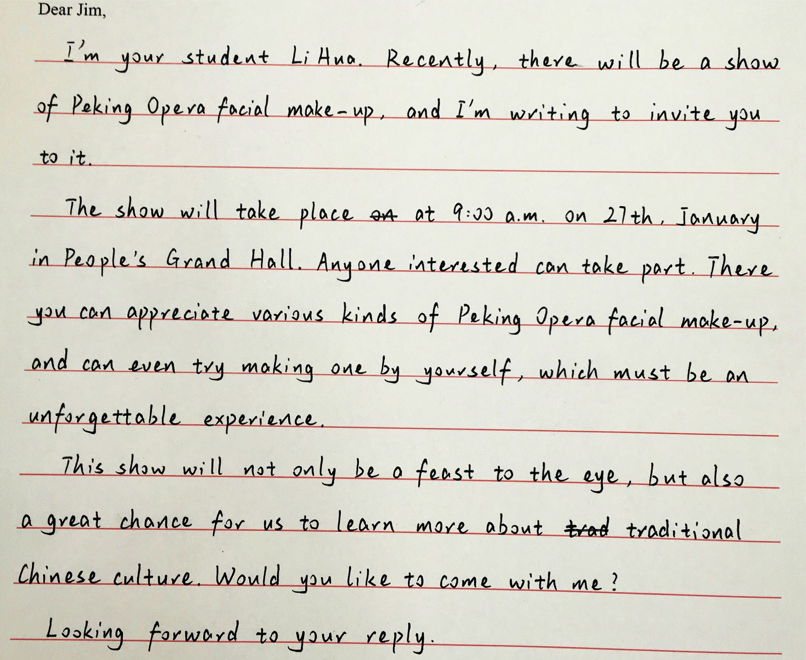 Dear Jim,
I'm your student Li Hua. Recently, there will be a show
of Peking Opera facial make-up, and I'm writing to invite you
to it.
The show will take place on at 9:00 a.m. on 27th, January
in People's Grand Hall. Anyone interested can take part. There
you can appreciate various kinds of Peking Opera facial make-up,
and can even try making one by yourself, which must be an
unforgettable experience.
This show will not only be a feast to the eye, but also
a great chance for us to learn more about trad traditional
Chinese culture. Would you like to come with me?
Looking forward to your reply.